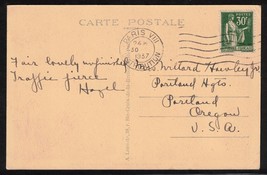 CARTE POSTALE
PARIS VIII
30
1937
30c
Fair lovely unfinished
Traffic fierce
Hazel
Willard Hawley Jr
Portland Hgts.
Portland
Oregon
U.S.A.